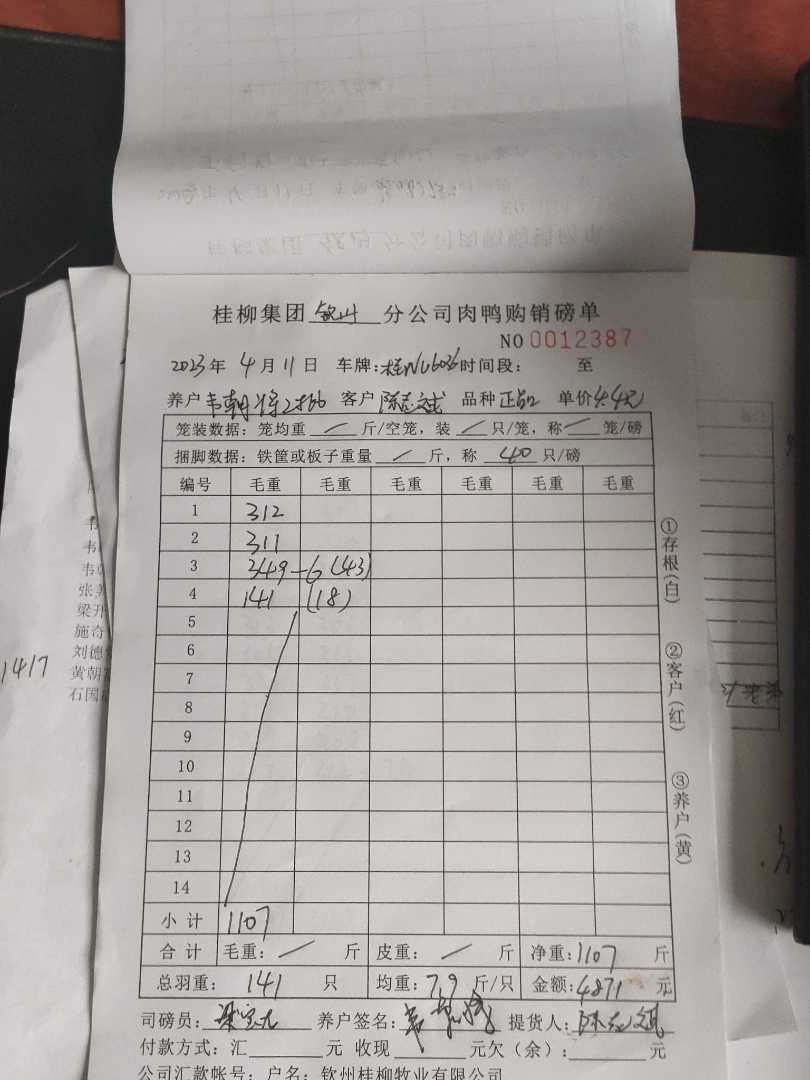 桂柳集团 钦州 分公司肉鸭购销磅单
NO 0012387
2023年 4月11日 车牌: 时间段: 至
养户 韦朝 客户 陈志斌 品种 正品 单价 4.4元
笼装数据: 笼均重 / 斤/空笼, 装 / 只/笼, 称 / 笼/磅
捆脚数据: 铁筐或板子重量 / 斤, 称 40 只/磅
编号 毛重 毛重 毛重 毛重 毛重 毛重
1 312
2 311
3 349-6 (43)
4 141 (18)
5
6
7
8
9
10
11
12
13
14
小计 1107
合计 毛重: / 斤 皮重: / 斤 净重: 1107 斤
总羽重: 141 只 均重: 7.9 斤/只 金额: 4871 元
司磅员: 养户签名: 提货人:
付款方式: 汇 元 收现 元欠(余): 元
公司汇款帐号: 户名: 钦州桂柳牧业有限公司
①存根(白)
②客户(红)
③养户(黄)
1417
刘德
黄朝
石国